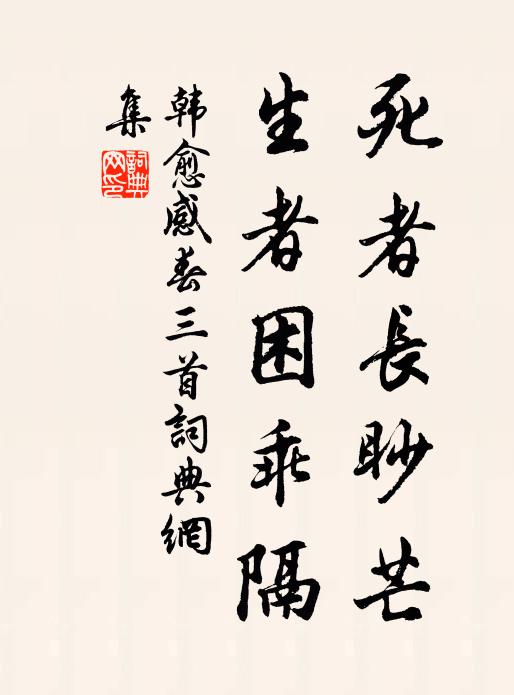 死者長眇芒
生者困乖隔
韩愈感春三首詞典網
集
詞典
网印